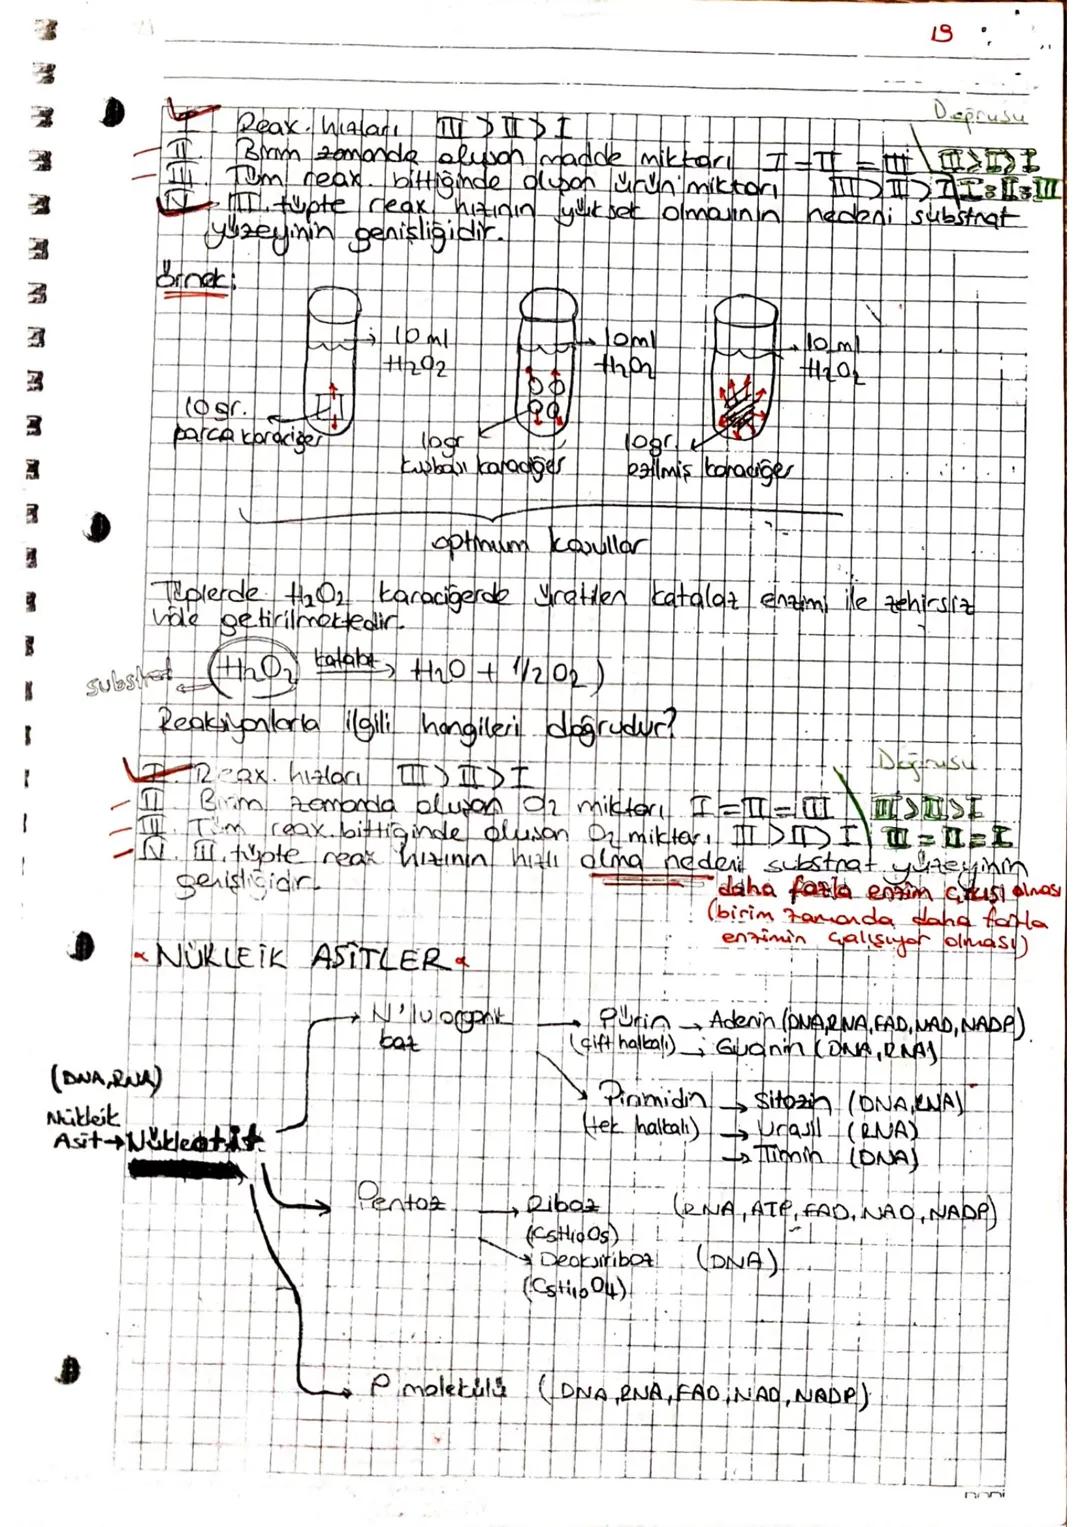 19
Doğrusu
I Reax. hızları III > II > I
II. Birim zamanda oluşan madde miktarı I = II = III \ III > II > I
III. Tüm reax. bittiğinde oluşan ürün miktarı III > II > I I = II = III
IV. III. tüpte reax hızının yüksek olmasının nedeni substrat
yüzeyinin genişliğidir.
Örnek:
10 ml H2O2
10ml H2O2
10 ml H2O2
10gr. parça karaciğer
10gr kuşbaşı karaciğer
10gr. ezilmiş karaciğer
optimum koşullar
Tüplerde H2O2 karaciğerde üretilen katalaz enzimi ile zehirsiz
hale getirilmektedir.
substrat (H2O2 katalaz → H2O + 1/2 O2)
Reaksiyonlarla ilgili hangileri doğrudur?
Doğrusu
I. Reax. hızları III > II > I
II Birim zamanda oluşan O2 miktarı I = II = III \ III > II > I
III. Tüm reax. bittiğinde oluşan O2 miktarı III > II > I \ III = II = I
IV. III. tüpte reax hızının hızlı olma nedeni substrat yüzeyinin
genişliğidir.
daha fazla enzim çıkışı olması
(birim zamanda daha fazla
enzimin çalışıyor olması)
NÜKLEİK ASİTLER
N'lu organik baz
→ Pürin (çift halkalı)
→ Adenin (DNA, RNA, FAD, NAD, NADP)
→ Guanin (DNA, RNA)
(DNA, RNA)
Nükleik
Asit → Nükleotit
Pirimidin (tek halkalı)
→ Sitozin (DNA, RNA)
→ Urasil (RNA)
→ Timin (DNA)
Pentoz → Riboz (RNA, ATP, FAD, NAD, NADP)
(C5H10O5)
Deoksiriboz (DNA)
(C5H10O4)
P molekülü (DNA, RNA, FAD, NAD, NADP)